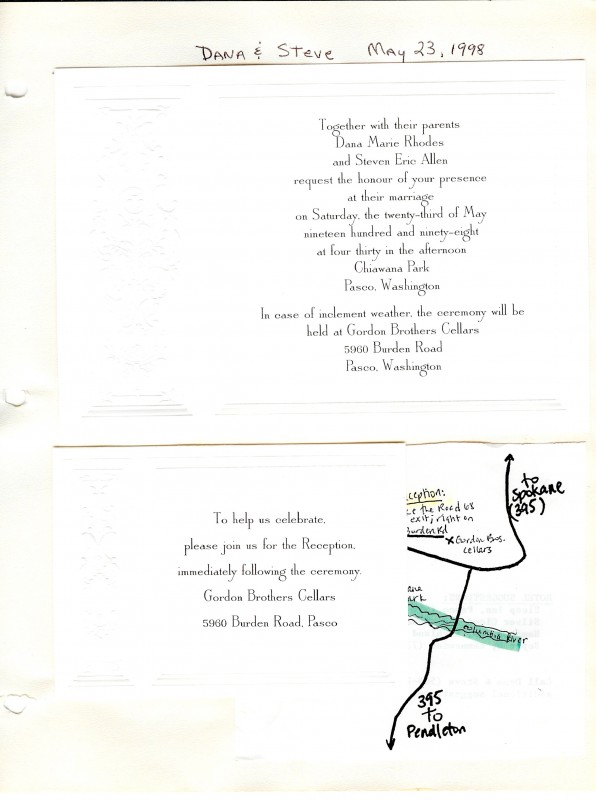 Dana & Steve May 23, 1998
Together with their parents
Dana Marie Rhodes
and Steven Eric Allen
request the honour of your presence
at their marriage
on Saturday, the twenty-third of May
nineteen hundred and ninety-eight
at four thirty in the afternoon
Chiawana Park
Pasco, Washington
In case of inclement weather, the ceremony will be
held at Gordon Brothers Cellars
5960 Burden Road
Pasco, Washington
To help us celebrate,
please join us for the Reception,
immediately following the ceremony.
Gordon Brothers Cellars
5960 Burden Road, Pasco
to
Spokane
(395)
ception:
the Road 68
exit; right on
Burden Rd
x Gordon Bros.
Cellars
ane
ark
Columbia River
395
to
Pendleton